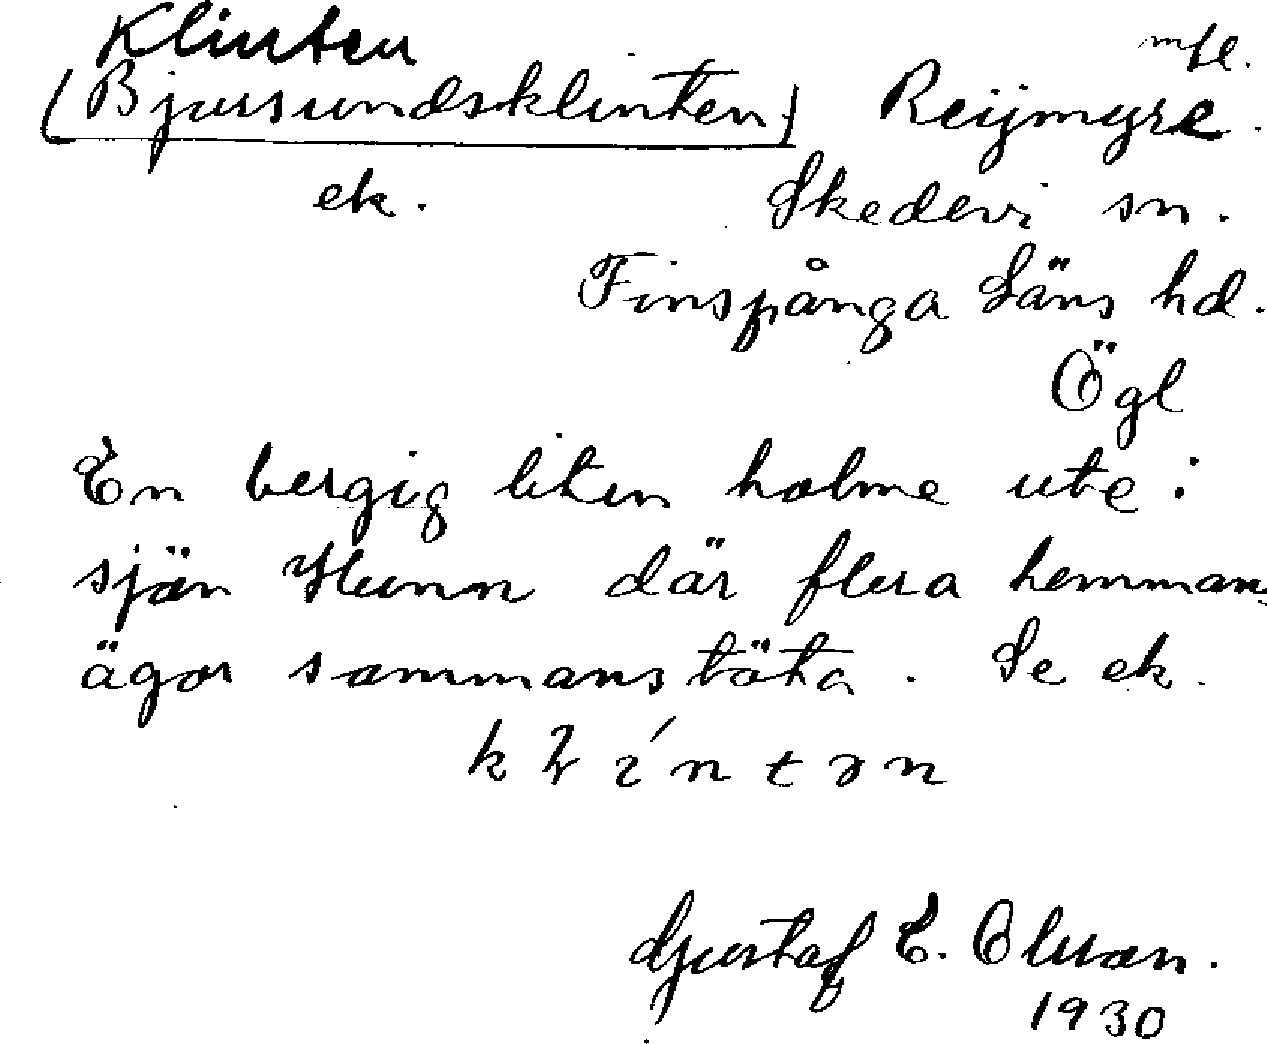 Klinten mfl.
(Bjursundsklinten) Reijmyre.
ek. Skedevi sn.
Finspånga Läns hd.
Ögl
En bergig liten holme ute i
sjön Hunn där flera hemmans
ägor sammanstöta. Se ek.
Gustaf E. Olsson.
1930